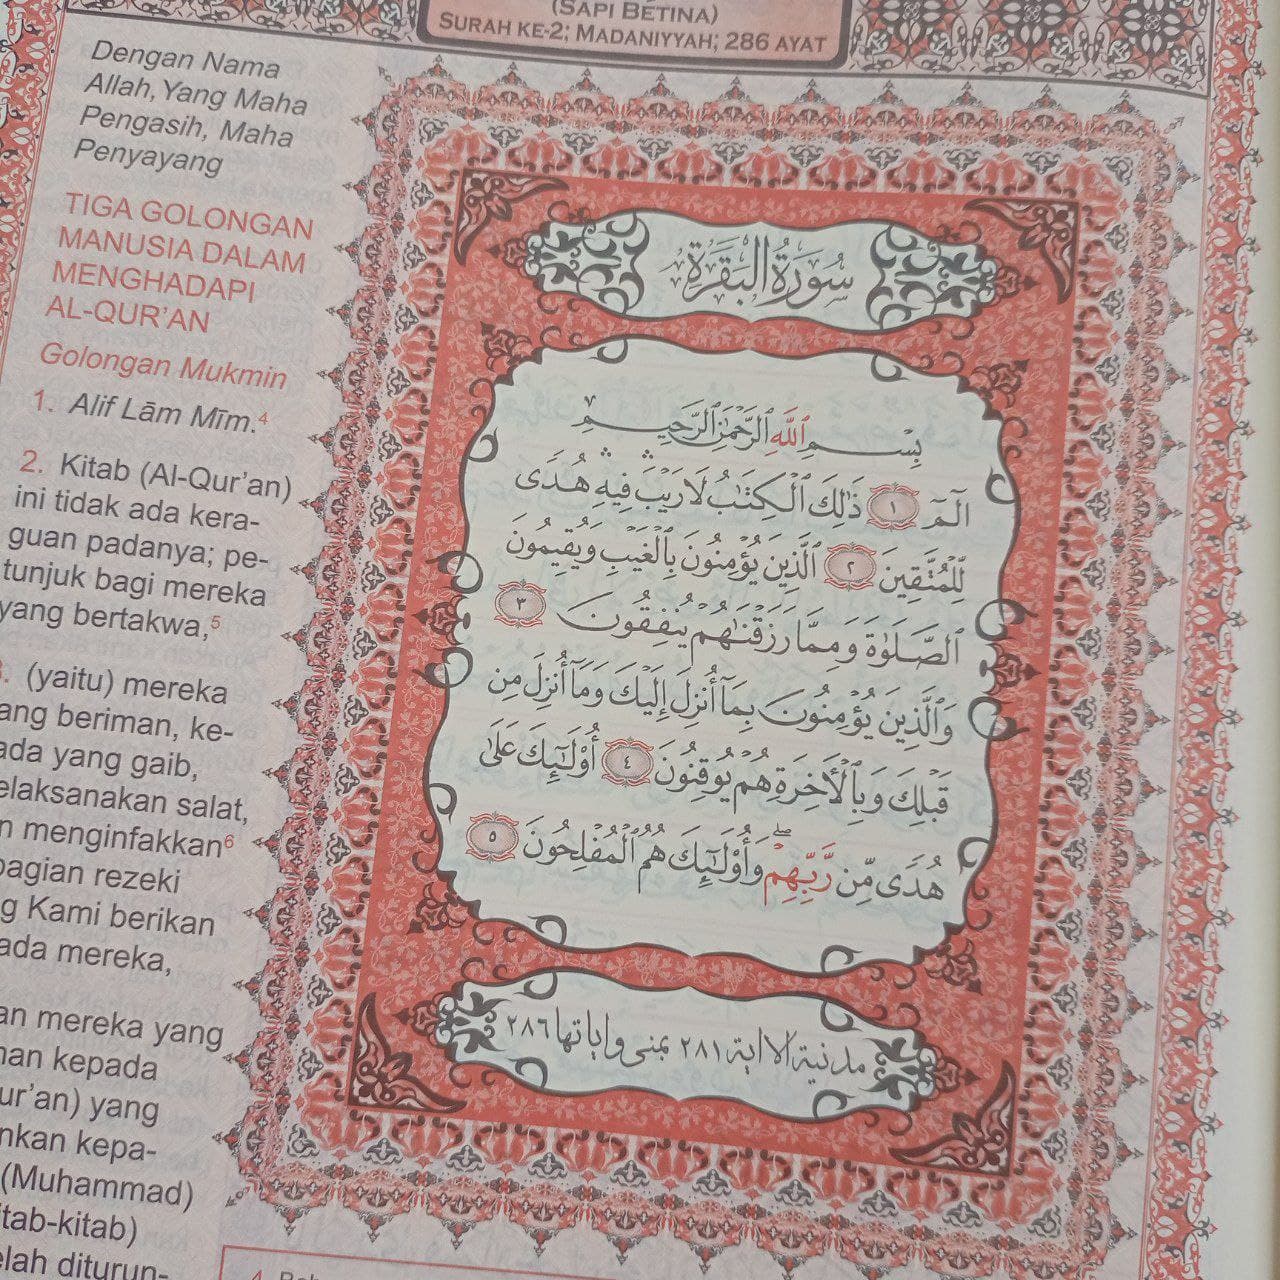 (SAPI BETINA)
SURAH KE-2; MADANIYYAH; 286 AYAT
Dengan Nama
Allah, Yang Maha
Pengasih, Maha
Penyayang
TIGA GOLONGAN
MANUSIA DALAM
MENGHADAPI
AL-QUR’AN
Golongan Mukmin
1. Alif Lām Mīm.4
2. Kitab (Al-Qur’an)
ini tidak ada kera-
guan padanya; pe-
tunjuk bagi mereka
yang bertakwa,5
(yaitu) mereka
ang beriman, ke-
ada yang gaib,
elaksanakan salat,
n menginfakkan6
bagian rezeki
g Kami berikan
ada mereka,
an mereka yang
nan kepada
ur’an) yang
nkan kepa-
(Muhammad)
tab-kitab)
elah diturun-
سُورَةُ الْبَقَرَةِ
بِسْمِ اللَّهِ الرَّحْمَٰنِ الرَّحِيمِ
الٓمٓ ١ ذَٰلِكَ الْكِتَٰبُ لَا رَيْبَ ۛ فِيهِ ۛ هُدًى
لِّلْمُتَّقِينَ ٢ الَّذِينَ يُؤْمِنُونَ بِالْغَيْبِ وَيُقِيمُونَ
الصَّلَوٰةَ وَمِمَّا رَزَقْنَٰهُمْ يُنْفِقُونَ ٣
وَالَّذِينَ يُؤْمِنُونَ بِمَآ أُنْزِلَ إِلَيْكَ وَمَآ أُنْزِلَ مِن
قَبْلِكَ وَبِالْأَخِرَةِ هُمْ يُوقِنُونَ ٤ أُوْلَٰٓئِكَ عَلَىٰ
هُدًى مِّن رَّبِّهِمْ ۖ وَأُوْلَٰٓئِكَ هُمُ الْمُفْلِحُونَ ٥
مدنية الا اية ٢٨١ بمنى واياتها ٢٨٦
4